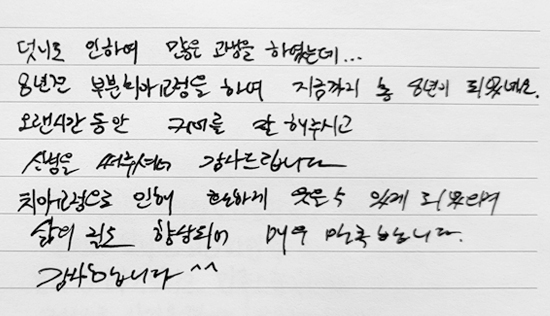 덧니로 인하여 많은 고생을 하였는데...
8년전 부분치아교정을 하여 지금까지 총 8년이 되었네요.
오랜시간 동안 케어를 잘 해주시고
신경을 써주셔서 감사드립니다
치아교정으로 인해 환하게 웃을 수 있게 되었으며
삶의 질도 향상되어 매우 만족합니다.
감사합니다 ^^